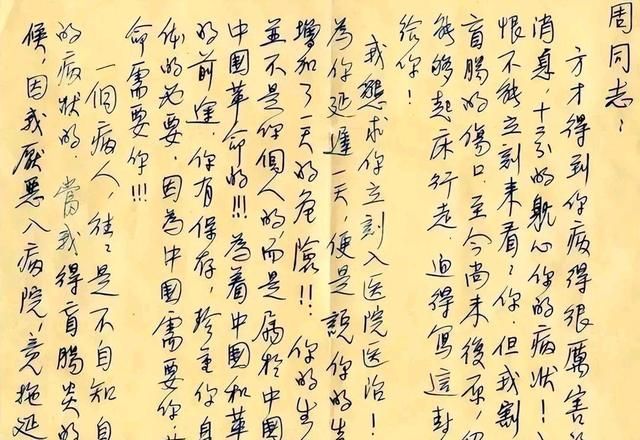 周同志：
方才得到你病得很厲害
消息，十分的躭心你的病狀！
恨不能立刻来看看你，但我割
盲腸的傷口，至今尚未復原，
能够起床行走，迫得寫這封
給你！
我懇求你立刻入医院医治！
為你延遲一天，便是説你的生
增加了一天的危險！！你的生
並不是你個人的，而是属於中国
中国革命的！！！為着中国和革
的前途，你有保存，珍重你身
体的必要，因為中国需要你，
命需要你！！！
一個病人，往往是不自知自
的病狀的，當我得盲腸炎的
候，因我厭惡入病院，竟拖延